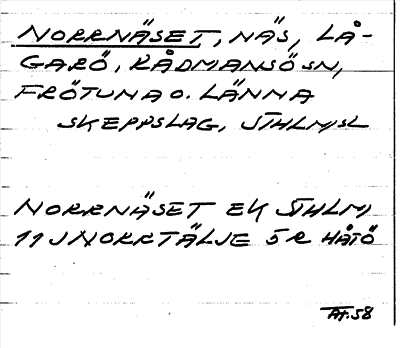 NORRNÄSET, NÄS, LÅ-
GARÖ, RÅDMANSÖ SN,
FRÖTUNA O. LÄNNA
SKEPPSLAG, STHLM,SL
NORRNÄSET EK STHLM,
11 J NORRTÄLJE 5 R HÅTÖ
AT.58